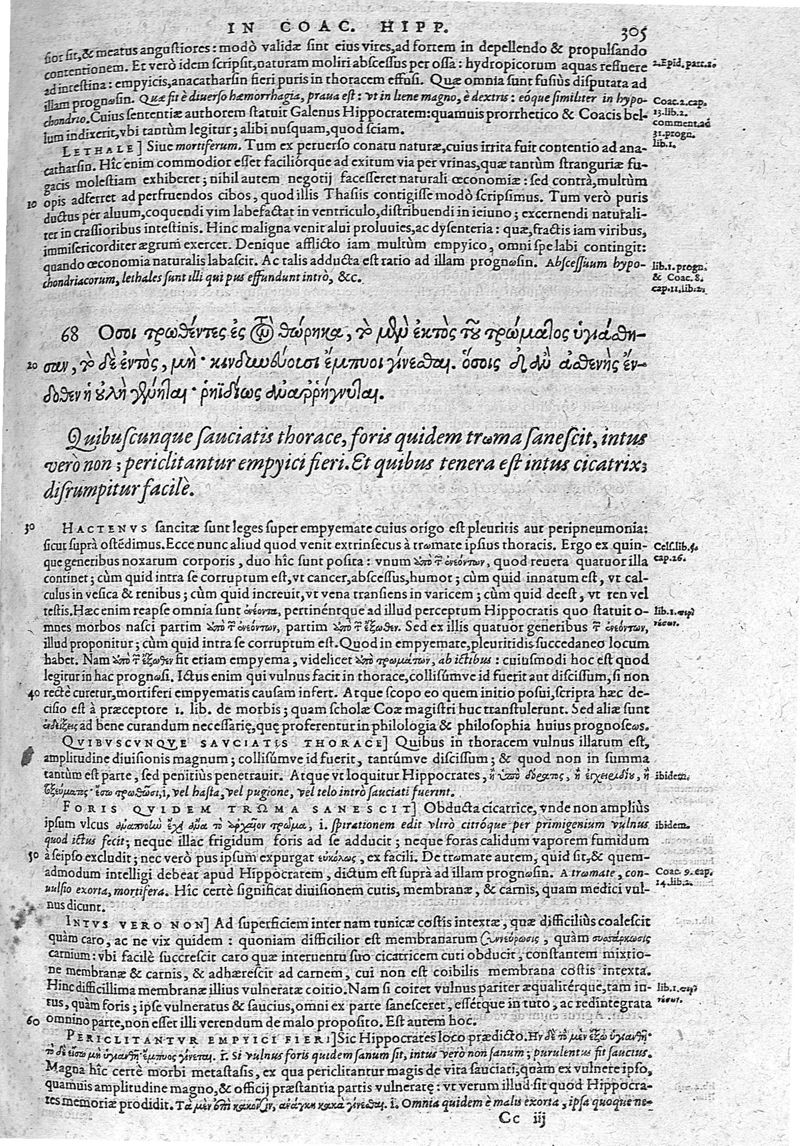 IN COAC. HIPP. 305
ſior ſit, & meatus anguſtiores: modò validæ ſint eius vires, ad fortem in depellendo & propulſando
contentionem. Et verò idem ſcripſit, naturam moliri abſceſſus per oſſa: hydropicorum aquas reſſuere
2. Epid. part. 1.
ad inteſtina: empyicis, anacatharſin fieri puris in thoracem effuſi. Quæ omnia ſunt fuſiùs diſputata ad
illam prognωſin. Quæ fit è diuerſo hæmorrhagia, praua eſt: vt in liene magno, è dextris: eóque ſimiliter in hypo-
chondrio. Cuius ſententiæ authorem ſtatuit Galenus Hippocratem: quamuis prorrhetico & Coacis bel-
lum indixerit, vbi tantùm legitur; alibi nuſquam, quod ſciam.
Coac. 2. cap.
13. lib. 2.
comment. ad
31. progn.
lib. 1.
LETHALE] Siue mortiferum. Tum ex peruerſo conatu naturæ, cuius irrita fuit contentio ad ana-
catharſin. Hîc enim commodior eſſet faciliorque ad exitum via per vrinas, quæ tantùm ſtranguriæ fu-
gacis moleſtiam exhiberet; nihil autem negotij faceſſeret naturali œconomiæ: ſed contrà, multùm
10 opis adferret ad perfruendos cibos, quod illis Thaſiis contigiſſe modò ſcripſimus. Tum verò puris
ductus per aluum, coquendi vim labefactat in ventriculo, diſtribuendi in ieiuno; excernendi naturali-
ter in craſſioribus inteſtinis. Hinc maligna venit alui proluuies, ac dyſenteria: quæ, fractis iam viribus,
immiſericorditer ægrum exercet. Denique afflicto iam multùm empyico, omni ſpe labi contingit:
quando œconomia naturalis labaſcit. Ac talis adducta eſt ratio ad illam prognωſin. Abſceſſuum hypo-
chondriacorum, lethales ſunt illi qui pus effundunt intrò, &c.
lib. 1. progn.
& Coac. 8.
cap. 11. lib. 2.
68 Οσοι τρωθέντες ἐς τὸν θώρηκα, τὸ μὲν ἐκτὸς τοῦ τρώματος ὑγιάθη-
20 σαν, τὸ δὲ ἐντὸς, μὴ· κινδυνεύουσι ἔμπυοι γίνεσθαι. ὅσοις δ' ἂν ἀσθενὴς ἔν-
δοθεν ἡ οὐλὴ γένηται· ῥηϊδίως ἀναῤῥήγνυται.
Quibuſcunque ſauciatis thorace, foris quidem trωma ſaneſcit, intus
verò non; periclitantur empyici fieri. Et quibus tenera eſt intus cicatrix;
diſrumpitur facilè.
30 HACTENVS ſancitæ ſunt leges ſuper empyemate cuius origo eſt pleuritis aut peripneumonia:
ſicut ſuprà oſtẽdimus. Ecce nunc aliud quod venit extrinſecus à trωmate ipſius thoracis. Ergo ex quin-
que generibus noxarum corporis, duo hîc ſunt poſita: vnum ὑπὸ τῶν ἐνεόντων, quod reuera quatuor illa
Celſ. lib. 5.
cap. 26.
continet; cùm quid intra ſe corruptum eſt, vt cancer, abſceſſus, humor; cùm quid innatum eſt, vt cal-
culus in veſica & renibus; cùm quid increuit, vt vena tranſiens in varicem; cùm quid deeſt, vt ren vel
teſtis. Hæc enim reapſe omnia ſunt ἐνεόντα, pertinéntque ad illud perceptum Hippocratis quo ſtatuit o-
mnes morbos naſci partim ὑπὸ τῶν ἐνεόντων, partim ὑπὸ τῶν ἔξωθεν. Sed ex illis quatuor generibus τῶν ἐνεόντων,
lib. 1. περὶ
νόσων.
illud proponitur; cùm quid intra ſe corruptum eſt. Quod in empyemate, pleuritidis ſuccedaneo locum
habet. Nam ὑπὸ τῶν ἔξωθεν fit etiam empyema, videlicet ὑπὸ τρωμάτων, ab ictibus: cuiuſmodi hoc eſt quod
legitur in hac prognωſi. Ictus enim qui vulnus facit in thorace, colliſúmve id fuerit aut diſciſſum, ſi non
40 rectè curetur, mortiferi empyematis cauſam infert. Atque ſcopo eo quem initio poſui, ſcripta hæc de-
ciſio eſt à præceptore 1. lib. de morbis; quam ſcholæ Coæ magiſtri huc tranſtulerunt. Sed aliæ ſunt
ἐνδείξεις ad bene curandum neceſſariæ, quæ proferentur in philologia & philoſophia huius prognoſεως.
QVIBVSCVNQVE SAVCIATIS THORACE] Quibus in thoracem vulnus illatum eſt,
amplitudine diuiſionis magnum; colliſúmve id fuerit, tantúmve diſciſſum; & quod non in ſumma
tantùm eſt parte, ſed penitiùs penetrauit. Atque vt loquitur Hippocrates, ἢ ὑπὸ δόρατος, ἢ ἐγχειριδίου, ἢ
ibidem.
τοξεύματος ἔσω τρωθῶσι, i, vel haſta, vel pugione, vel telo intrò ſauciati fuerint.
FORIS QVIDEM TRΩMA SANESCIT] Obducta cicatrice, vnde non ampliùs
ipſum vlcus ἀναπνοὴν ἔχῃ ἀνὰ τὸ ἀρχαῖον τρῶμα, i. ſpirationem edit vltrò citróque per primigenium vulnus
ibidem.
quod ictus fecit; neque illac frigidum foris ad ſe adducit; neque foras calidum vaporem fumidum
50 à ſeipſo excludit; nec verò pus ipſum expurgat εὐκόλως, ex facili. De trωmate autem, quid ſit, & quem-
admodum intelligi debeat apud Hippocratem, dictum eſt ſuprà ad illam prognωſin. A trωmate, con-
uulſio exorta, mortifera. Hîc certè ſignificat diuiſionem cutis, membranæ, & carnis, quam medici vul-
nus dicunt.
Coac. 9. cap.
14. lib. 2.
INTVS VERO NON] Ad ſuperficiem internam tunicæ coſtis intextæ, quæ difficiliùs coaleſcit
quàm caro, ac ne vix quidem: quoniam difficilior eſt membranarum συνεύρωσις, quàm συσσάρκωσις
carnium: vbi facilè ſuccreſcit caro quæ interuentu ſuo cicatricem cuti obducit, conſtantem mixtio-
ne membranæ & carnis, & adhæreſcit ad carnem, cui non eſt coibilis membrana coſtis intexta.
Hinc difficillima membranæ illius vulneratæ coitio. Nam ſi coiret vulnus pariter æqualitérque, tam in-
tus, quàm foris; ipſe vulneratus & ſaucius, omni ex parte ſaneſceret, eſſétque in tuto, ac redintegrata
60 omnino parte, non eſſet illi verendum de malo propoſito. Eſt autem hoc.
lib. 1. περὶ
νόσων.
PERICLITANTVR EMPYICI FIERI] Sic Hippocrates loco prædicto. Ην δὲ τὸ μὲν ἔξω ὑγιανθῇ·
τὸ δὲ εἴσω μὴ ὑγιανθῇ· ἔμπυος γίνεται. i. Si vulnus foris quidem ſanum ſit, intus verò non ſanum; purulentus fit ſaucius.
Magna hîc certè morbi metaſtaſis, ex qua periclitatur magis de vita ſauciati, quàm ex vulnere ipſo,
quamuis amplitudine magno, & officij præſtantia partis vulneratæ: vt verum illud ſit quod Hippocra-
tes memoriæ prodidit. Τὰ μὲν ἐπὶ κακοῖσιν, ἀνάγκη κακὰ γίνεσθαι. i. Omnia quidem è malis exorta, ipſa quoque ne-
Cc iij